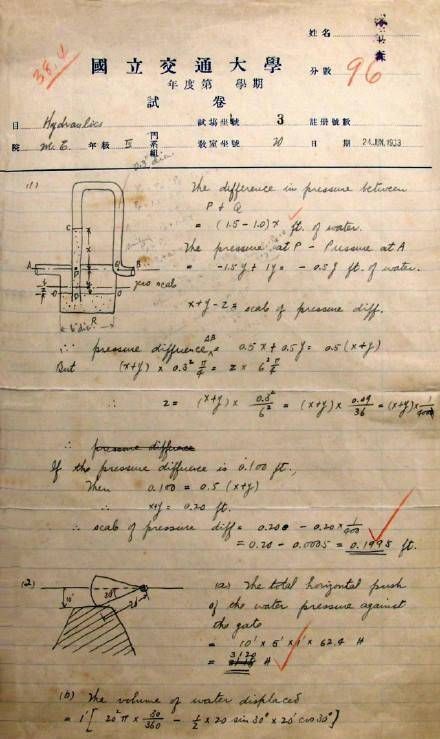 姓名
38.4
國立交通大學
分數 96
年度第 學期
試卷
目 Hydraulics 試場坐號 3 註冊號數
院 M.E. 年級 IV 門系組 教室坐號 20 日期 24 JUN. 1933
(1)
The difference in pressure between
P & Q
= (1.5 - 1.0)x ft. of water.
The pressure at P - Pressure at A
= -1.5y + 1y = -0.5y ft. of water.
C
A
B
zero scale
O
O
R
6" dia.
x+y-z = scale of pressure diff.
∴ pressure difference AB = 0.5x + 0.5y = 0.5(x+y)
But (x+y) × 0.3² π/4 = z × 6² π/4
∴ z = (x+y) × 0.3²/6² = (x+y) × 0.09/36 = (x+y) × 1/400
∴ pressure difference
If the pressure difference is 0.100 ft.,
Then 0.100 = 0.5 (x+y)
∴ x+y = 0.20 ft.
∴ scale of pressure diff = 0.200 - 0.20 × 1/400
= 0.20 - 0.0005 = 0.1995 ft.
(2)
10'
30°
20'
(a) The total horizontal push
of the water pressure against
the gate
= 10' × 5' × 1' × 62.4 #
= 3120 #
(b) The volume of water displaced
= 1' [ 20² π × 30/360 - 1/2 × 20 sin 30° × 20' cos 30° ]